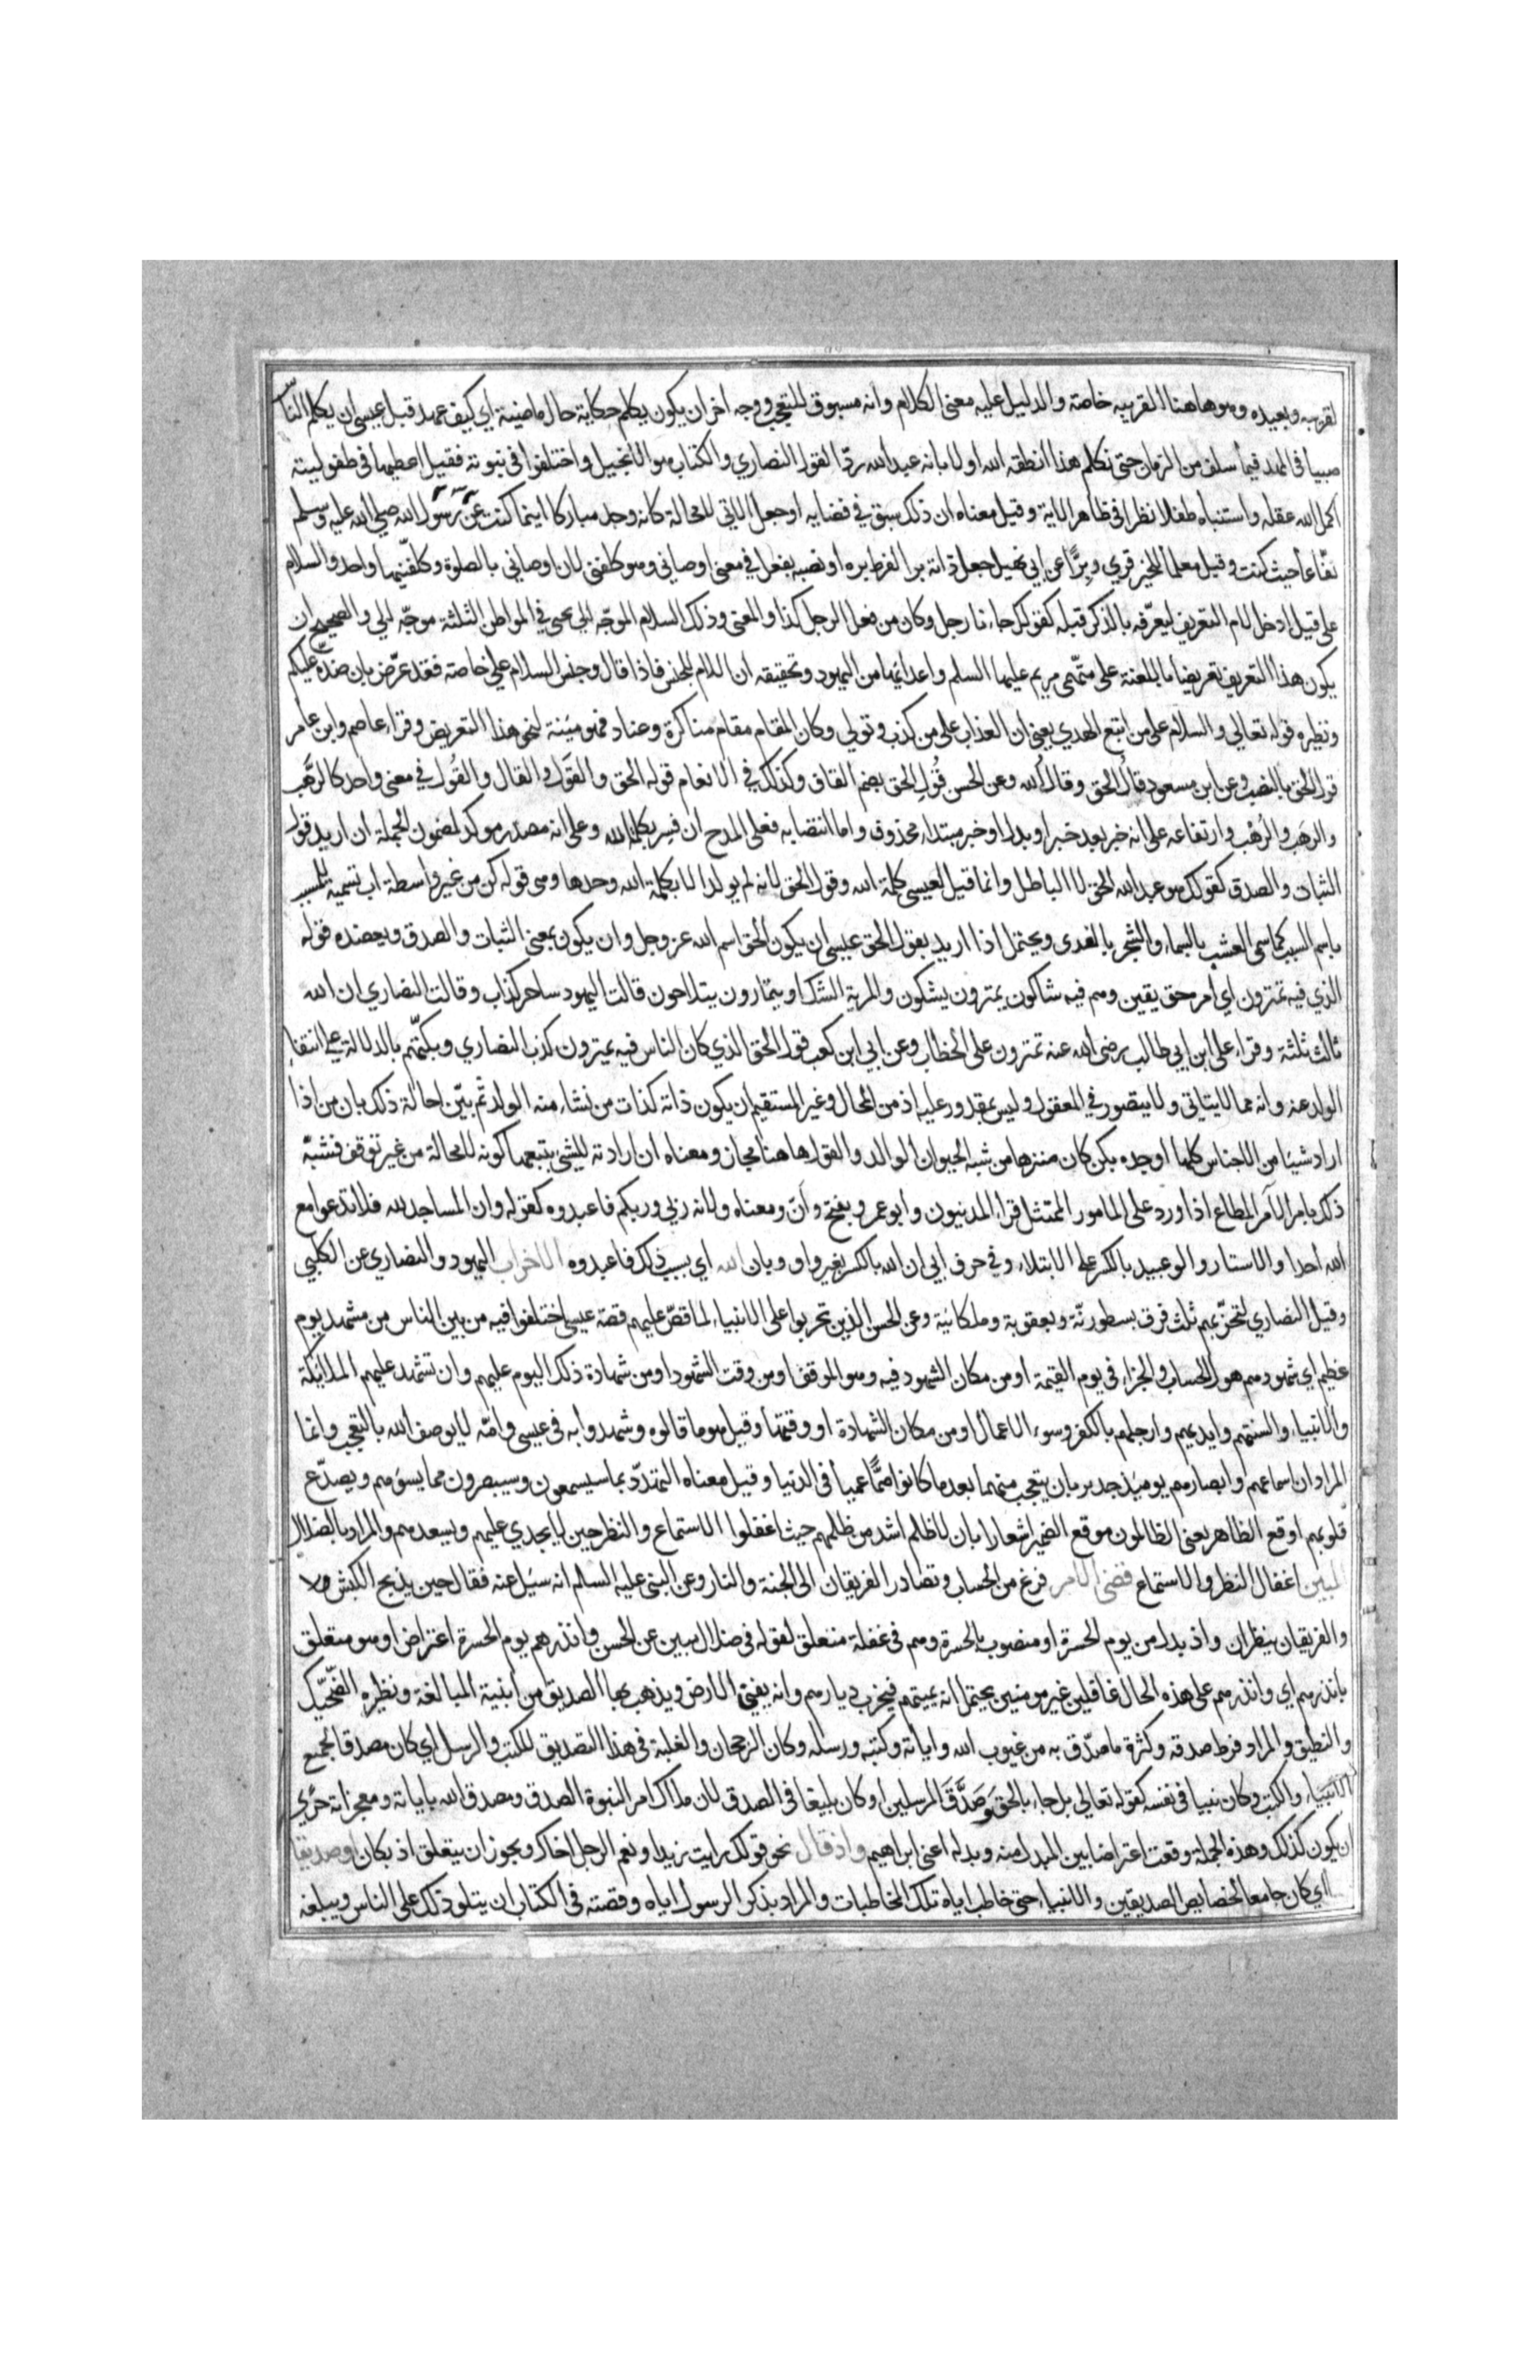 لقريبه وبعيده وهو هاهنا لقريبه خاصة والدليل عليه معنى الكلام وانه مسوق للتعجب ووجه اخر ان يكون يكلم حكاية حال ماضية اي كيف عهد قبل عيسى ان يكلم الناس
صبيا فى المهد فيما سلف من الزمان حتى نكلم هذا انطقه الله اولا بانه عبد الله ردا لقول النصاري والكتاب هو الانجيل واختلفوا فى نبوته فقيل اعطيها فى طفوليته
اكمل الله عقله واستنباه طفلا نظرا فى ظاهر الاية وقيل معناه ان ذلك سبق في قضايه او جعل الاتي لا محالة كانه وجد مباركا اينما كنت عن رسول الله صلي الله عليه وسلم
نفاعا حيث كنت وقيل معلما للخير قري وبرا عن ابي نهيك جعل ذاته برا لفرط بره او نصبه بفعل في معنى اوصاني وهو كلفني لان اوصاني بالصلوة وكلفنيها واحد والسلام
علي قيل ادخل لام التعريف ليعرفه بالذكر قبله كقولك جاءنا رجل وكان من فعل الرجل كذا والمعنى وذلك السلام الموجه الى يحيى في المواطن الثلثة موجه الي والصحيح ان
يكون هذا التعريف تعريضا باللعنة على متهمي مريم عليها السلم واعدائها من اليهود وتحقيقه ان اللام للجنس فاذا قال وجنس السلام علي خاصة فقد عرض بان ضده عليكم
ونظيره قوله تعالي والسلام على من اتبع الهدي يعني ان العذاب على من كذب وتولي وكان المقام مقام مناكرة وعناد فهو مئنة لنحو هذا التعريض وقراء عاصم وابن عامر
قول الحق بالنصب وعن ابن مسعود قال الحق وقال الله وعن الحسن قُول الحق بضم القاف وكذلك في الانعام قوله الحق والقَول والقال والقُول في معنى واحد كالرَّهب
والرَهَب والرُهْب وارتفاعه على انه خبر بعد خبر او بدل او خبر مبتداء محذوف واما انتصابه فعلى المدح ان فسر بكلمة الله وعلى انه مصدر موكد لمضمون الجملة ان اريد قول
الثبات والصدق كقولك هو عبد الله الحق لا الباطل وانما قيل لعيسى كلمة الله وقول الحق لانه لم يولد الا بكلمة الله وحدها وهي قوله كن من غير واسطة اب تسمية للمسبب
باسم السبب كما سمى العشب بالسماء والشحم بالندى ويحتمل اذا اريد بقول الحق عيسى ان يكون الحق اسم الله عز وجل وان يكون بمعنى الثبات والصدق ويعضده قوله
الذي فيه تمترون اي امره حق يقين وهم فيه شاكون يمترون يشكون والمرية الشك او يتمارون يتلاحون قالت اليهود ساحر كذاب وقالت النصاري ان الله
ثالث ثلثة وقراء علي ابن ابي طالب رضى الله عنه تمترون على الخطاب وعن ابي ابن كعب قول الحق الذي كان الناس فيه يمترون كذب النصاري وبكتهم بالدلالة على انتفاء
الولد عنه وانه مما لا يتاتى ولا يتصور في المعقول وليس بمقدور عليه اذ من المحال وغير المستقيم ان يكون ذاته كذات من نشاء منه الولد ثم بيّن احالة ذلك بان من اذا
اراد شيئا من الاجناس كلها اوجده بكن كان منزها من شبه الحيوان الوالد والقول هاهنا مجاز ومعناه ان ارادته للشئ يتبعها كونه لا محالة من غير توقف فشبّه
ذلك بامر الآمر المطاع اذا ورد على المامور الممتثل قراء المدنيون وابو عمرو بفتح وأن ومعناه ولانه ربي وربكم فاعبدوه كقوله وان المساجد لله فلا تدعوا مع
الله احدا والاستار وابو عبيد بالكسر على الابتداء وفي حرف ابي ان الله بالكسر بغير واو وبان الله اي بسبب ذلك فاعبدوه الاحزاب اليهود والنصاري عن الكلبي
وقيل النصاري لتحزبهم ثلث فرق نسطورية ويعقوبة وملكانية وعن الحسن الذين تحزبوا على الانبياء لما قص عليهم قصة عيسى اختلفوا فيه من بين الناس من مشهد يوم
عظيم اي شهودهم هول الحساب والجزاء في يوم القيمة او من مكان الشهود فيه وهو الموقف او من وقت الشهود او من شهادة ذلك اليوم عليهم وان تشهد عليهم الملائكة
والانبياء والسنتهم وايديهم وارجلهم بالكفر وسوء الاعمال او من مكان الشهادة او وقتها وقيل هو ما قالوه وشهدوا به فى عيسى وامه لا يوصف الله بالتعجب وانما
المراد ان اسماعهم وابصارهم يومئذ جدير بان يتعجب منهما بعد ما كانوا صمّا عميا فى الدنيا وقيل معناه التهدد بما سيسمعون وسيبصرون مما يسوهم ويصدّع
قلوبهم اوقع الظاهر يعنى الظالمون موقع الضمير اشعارا بان لا ظلم اشد من ظلمهم حيث اغفلوا الاستماع والنظر حين لا يجدي عليهم ويسعدهم والمراد بالضلال
المبين اغفال النظر والاستماع قضى الامر فرغ من الحساب وتصادر الفريقان الى الجنة والنار وعن النبى عليه السلم انه سئل عنه فقال حين يذبح الكبش
والفريقان ينظران واذ بدل من يوم الحسرة او منصوب بالحسرة وهم فى غفلة متعلق لقوله فى ضلال مبين عن الحسن وانذرهم يوم الحسرة اعتراض او هو متعلق
بانذرهم اي وانذرهم على هذه الحال غافلين غير مومنين يحتمل انه يميتهم فيخرب ديارهم وانه يفنى الارض ويذهب بها الصديق من ابنية المبالغة ونظيره الضحّيك
والنطيق والمراد فرط صدقه وكثرة ما صدّق به من غيوب الله واياته وكتبه ورسله وكان الرجحان والغلبة فى هذا التصديق للكتب والرسل اي كان مصدقا بجميع
الانبياء والكتب وكان نبيا فى نفسه كقوله تعالى بل جاء بالحق وَصَدَّقَ المرسلين او كان بليغا فى الصدق لان ملاك امر النبوة الصدق ومصدق الله باياته ومعجزاته حري
ان يكون كذلك وهذه الجملة وقعت اعتراضا بين المبدل منه وبدله اعنى ابراهيم واذ قال نحو قولك رايت زيدا ونعم الرجل اخاك ويجوز ان يتعلق اذ بكان او صديقا
اي كان جامعا لخصايص الصديقين والانبياء حتى خاطب اياه تلك المخاطبات والمراد بذكر الرسول اياه وقصته فى الكتاب ان يتلو ذلك على الناس ويبلغه